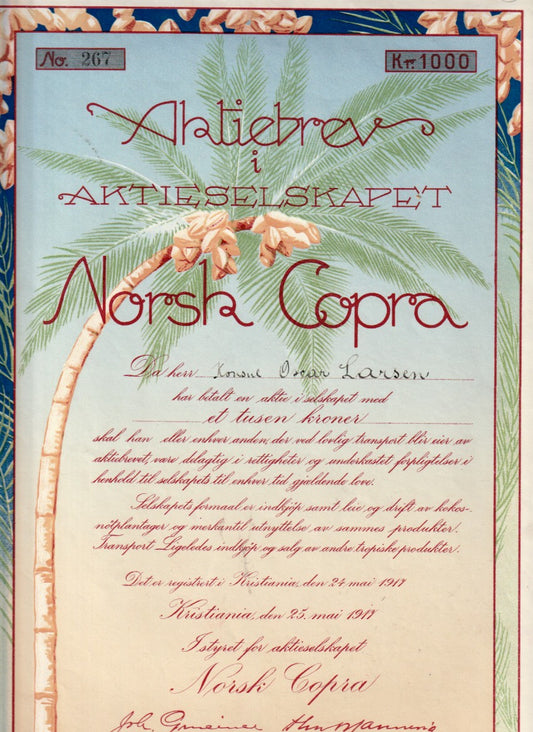 No. 267
Kr. 1000
Aktiebrev
i
AKTIESELSKAPET
Norsk Copra
Da herr Konsul Oscar Larsen
har betalt en aktie i selskapet med
et tusen kroner
skal han eller enhver anden, der ved lovlig transport blir eier av
aktiebrevet, være delagtig i rettigheter og underkastet forpligtelser i
henhold til selskapets til enhver tid gjældende love.
Selskapets formaal er indkjøp samt leie og drift av kokos-
nötplantager og merkantil utnyttelse av sammes produkter.
Transport Ligeledes indkjøp og salg av andre tropiske produkter.
Det er registrert i Kristiania, den 24 mai 1917
Kristiania, den 25. mai 1917
I styret for aktieselskapet
Norsk Copra
Joh.